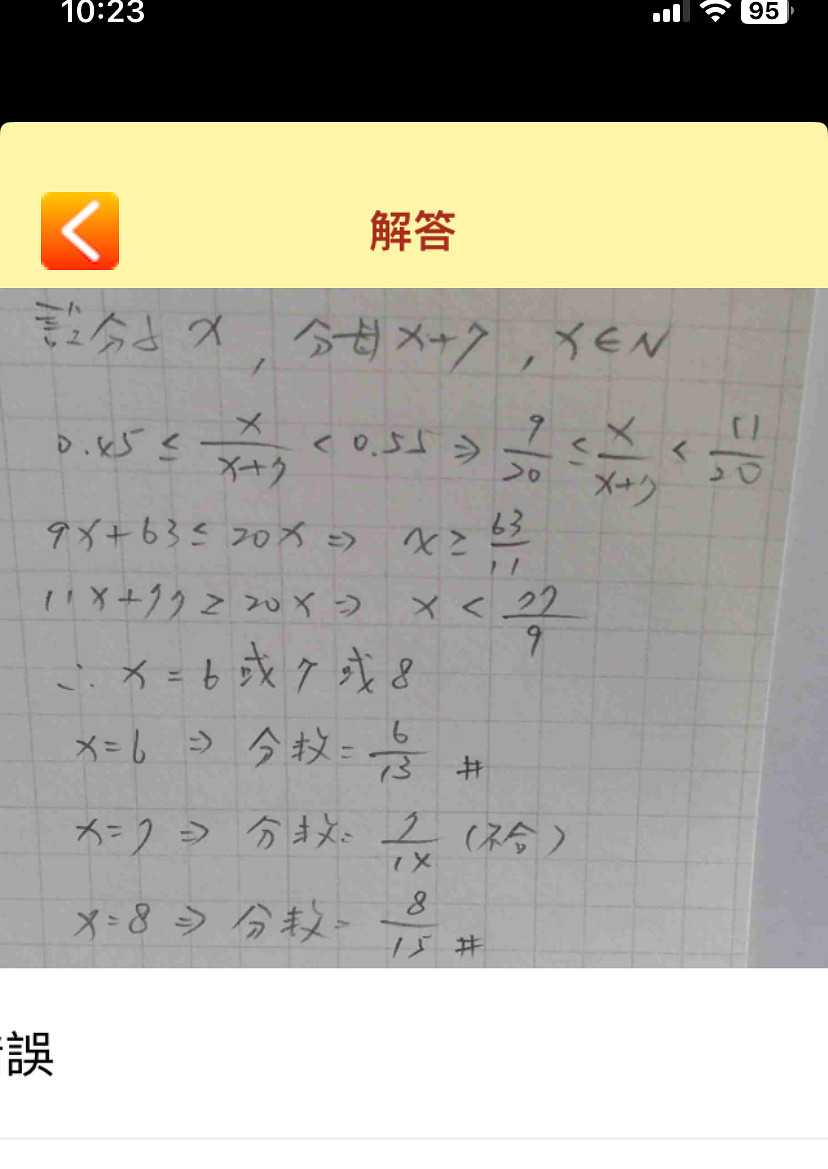 10:23 95
解答
設分子 x , 分母 x+7 , x∈N
0.45 ≤ x/(x+7) < 0.55 ⇒ 9/20 ≤ x/(x+7) < 11/20
9x+63 ≤ 20x ⇒ x ≥ 63/11
11x+77 ≥ 20x ⇒ x < 77/9
∴ x = 6 或 7 或 8
x=6 ⇒ 分數 = 6/13 #
x=7 ⇒ 分數 = 7/14 (不合)
x=8 ⇒ 分數 = 8/15 #
誤